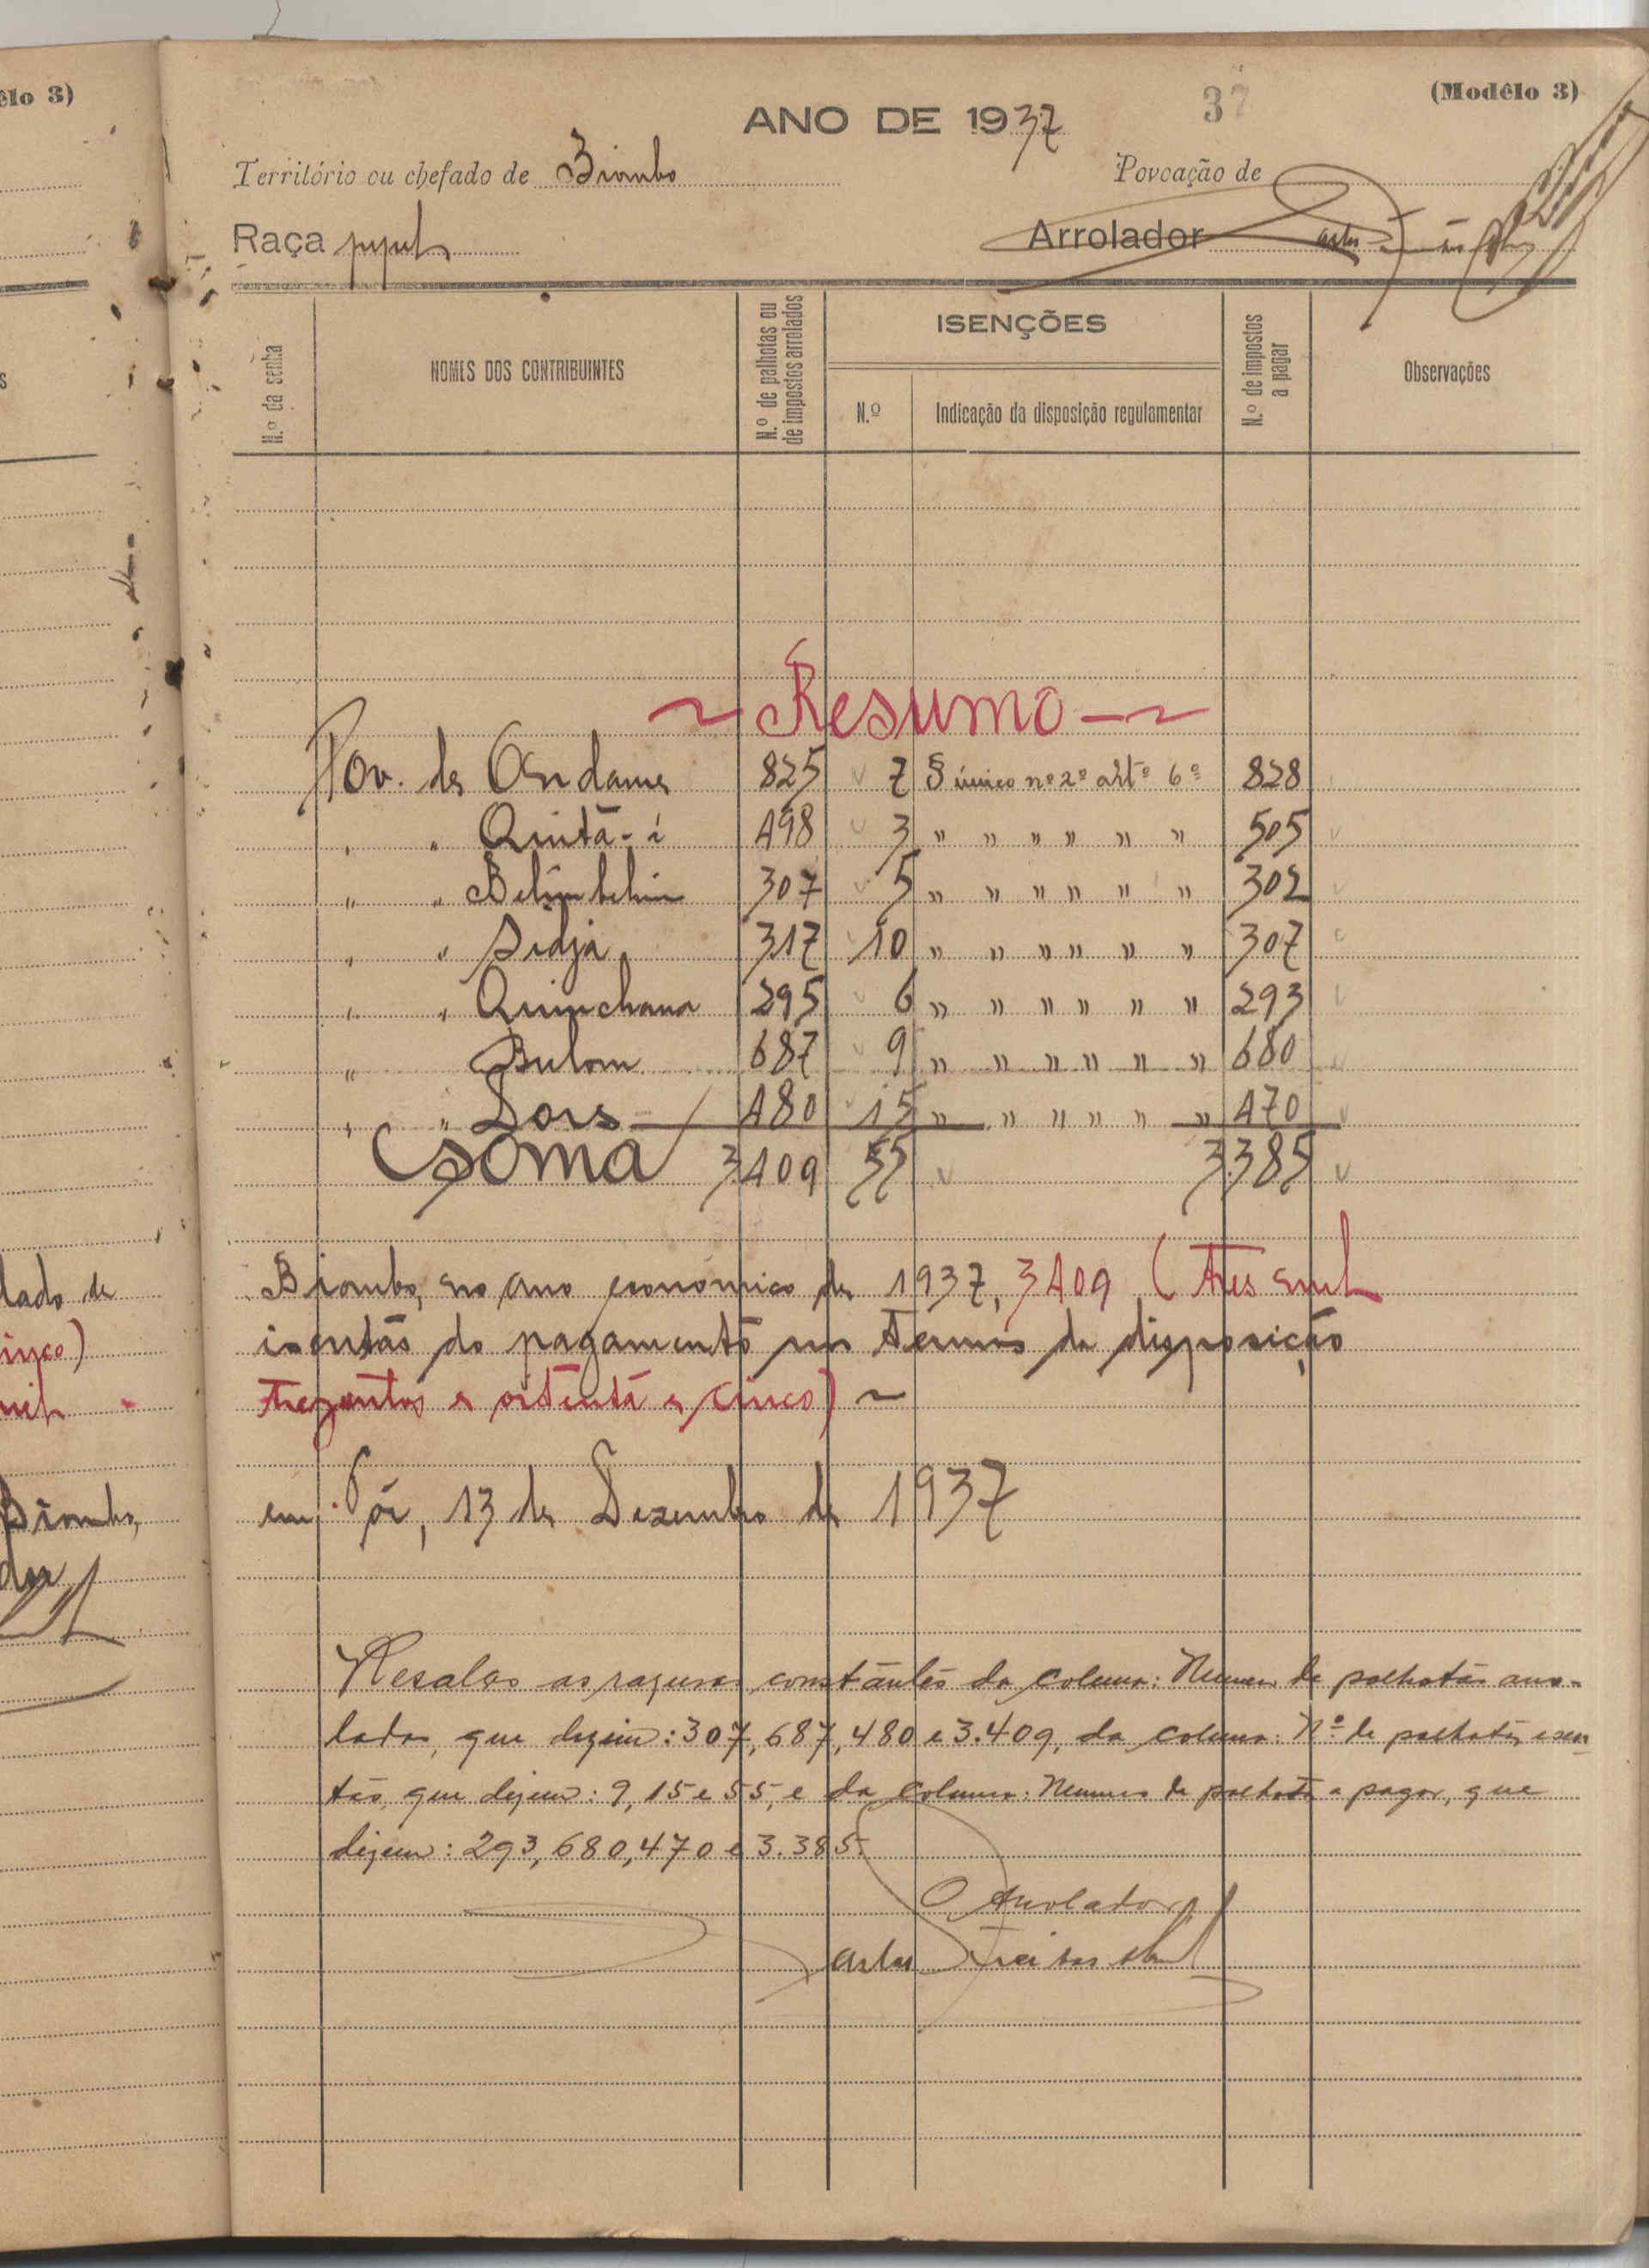 êlo 3)
37
(Modêlo 3)
ANO DE 1937
Território ou chefado de Biombo
Povoação de
Raça papel
Arrolador
N.º da senha
NOMES DOS CONTRIBUINTES
N.º de palhotas ou de impostos arrolados
ISENÇÕES
N.º
Indicação da disposição regulamentar
N.º de impostos a pagar
Observações
~ Resumo - ~
Pov. de Ondame 825 7 § único nº 2º artº 6º 828
" " Quintã-i 498 3 " " " " " " 505
" " Belimbelim 307 5 " " " " " " 302
" " Sidjá 317 10 " " " " " " 307
" " Quinchana 295 6 " " " " " " 293
" Bulom 687 9 " " " " " " 680
" " Dors 480 15 " " " " " " 470
Soma 3.409 55 3.385
lado de
Biombo, no ano económico de 1937, 3409 (Tres mil
inco)
isentas do pagamento nos termos da disposição
mil
trezentos e oitenta e cinco) ~
Biombo,
em Pór, 13 de Dezembro de 1937
dor
Resalvo as razuras constantes da coluna: Numero de palhotas arro-
ladas, que dizem: 307, 687, 480 e 3.409, da coluna: Nº de palhotas isen
tas, que dizem: 9, 15 e 55, e da coluna: Numero de palhotas a pagar, que
dizem: 293, 680, 470 e 3.385.
O Arrolador
Carlos Freitas